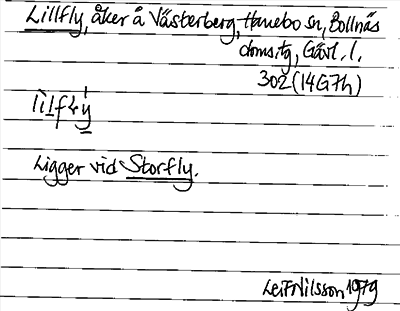 Lillfly, åker å Västerberg, Hanebo sn, Bollnäs
domsag, Gävl. l.
302 (14G7h)
Ligger vid Storfly.
Leif Nilsson 1979